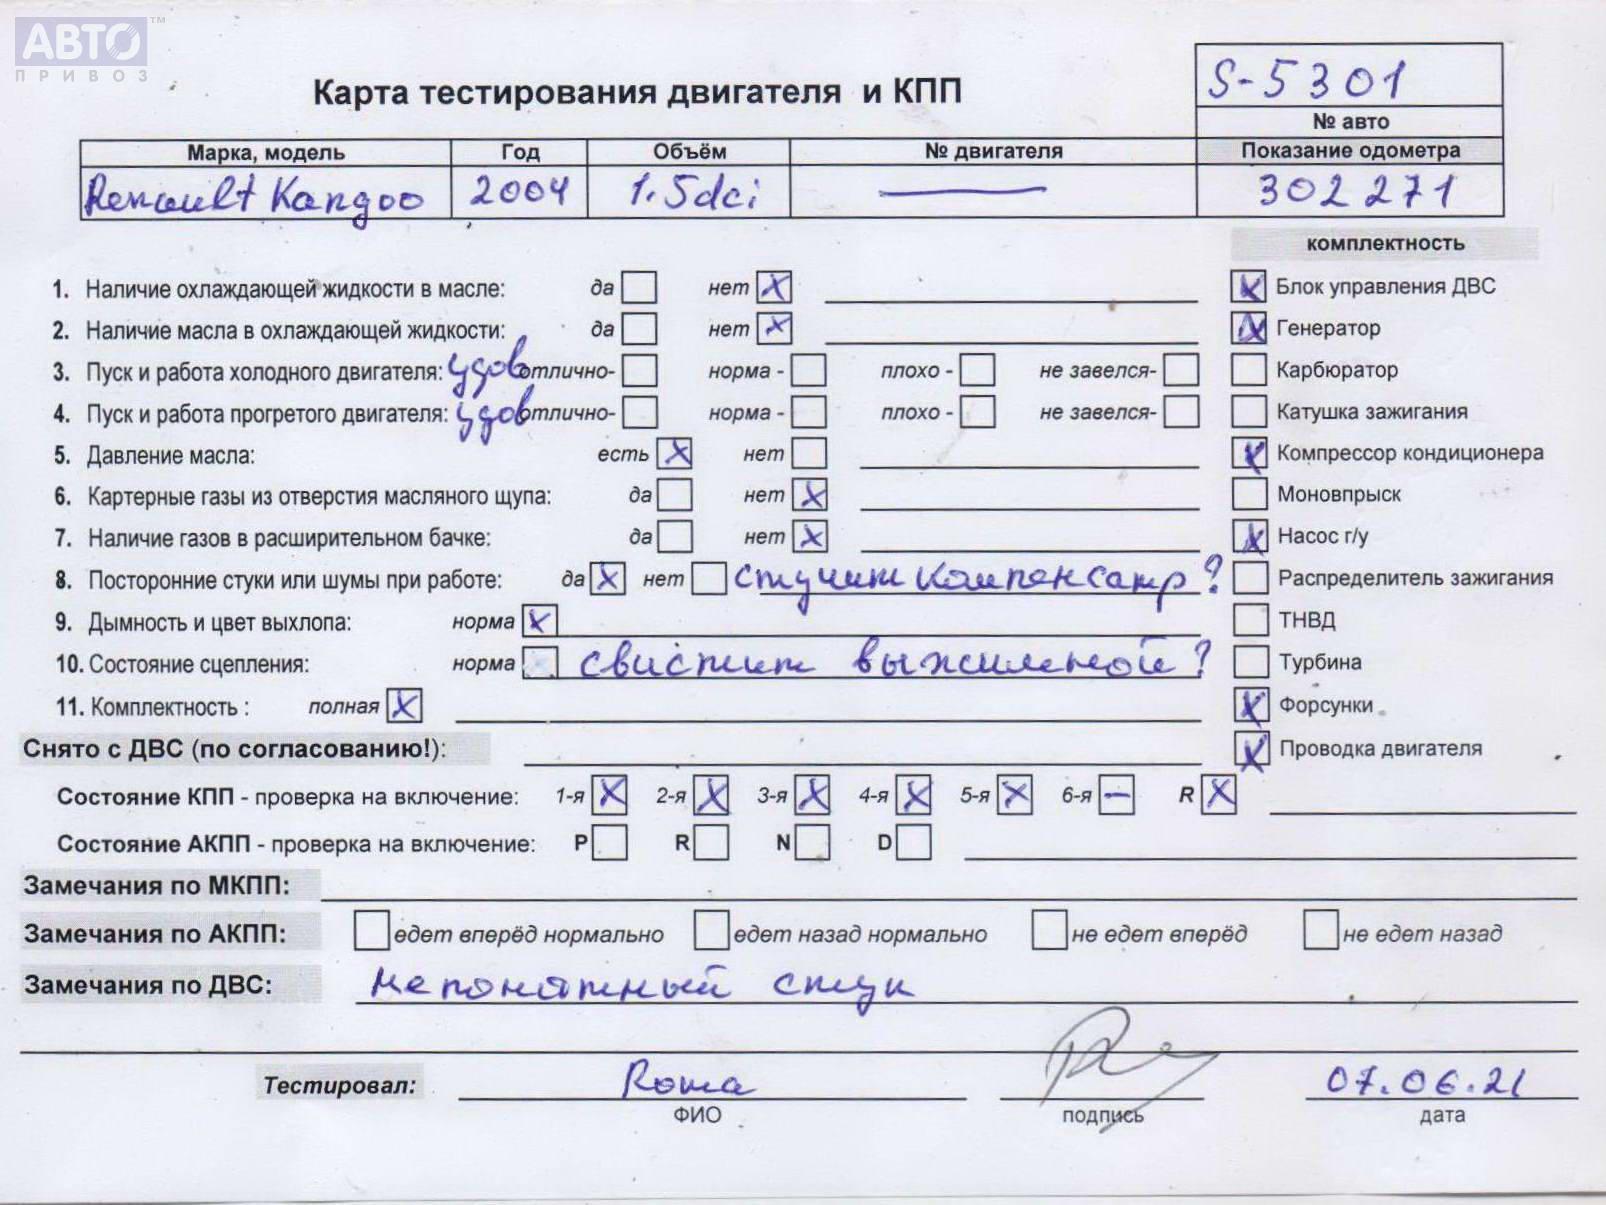 АВТО™
ПРИВОЗ
S-5301
Карта тестирования двигателя и КПП
№ авто
Марка, модель Год Объём № двигателя Показание одометра
Renault Kangoo 2004 1.5dci — 302271
комплектность
1. Наличие охлаждающей жидкости в масле: да нет X Блок управления ДВС X
2. Наличие масла в охлаждающей жидкости: да нет X Генератор X
3. Пуск и работа холодного двигателя: удов отлично- норма - плохо - не завелся- Карбюратор
4. Пуск и работа прогретого двигателя: удов отлично- норма - плохо - не завелся- Катушка зажигания
5. Давление масла: есть X нет X Компрессор кондиционера
6. Картерные газы из отверстия масляного щупа: да нет X Моновпрыск
7. Наличие газов в расширительном бачке: да нет X X Насос г/у
8. Посторонние стуки или шумы при работе: да X нет стучит компенсатр? Распределитель зажигания
9. Дымность и цвет выхлопа: норма X ТНВД
10. Состояние сцепления: норма свистит выжимной? Турбина
11. Комплектность : полная X X Форсунки
Снято с ДВС (по согласованию!): X Проводка двигателя
Состояние КПП - проверка на включение: 1-я X 2-я X 3-я X 4-я X 5-я X 6-я — R X
Состояние АКПП - проверка на включение: P R N D
Замечания по МКПП:
Замечания по АКПП: едет вперёд нормально едет назад нормально не едет вперёд не едет назад
Замечания по ДВС: непонятный стук
Тестировал: Roma 07.06.21
ФИО подпись дата